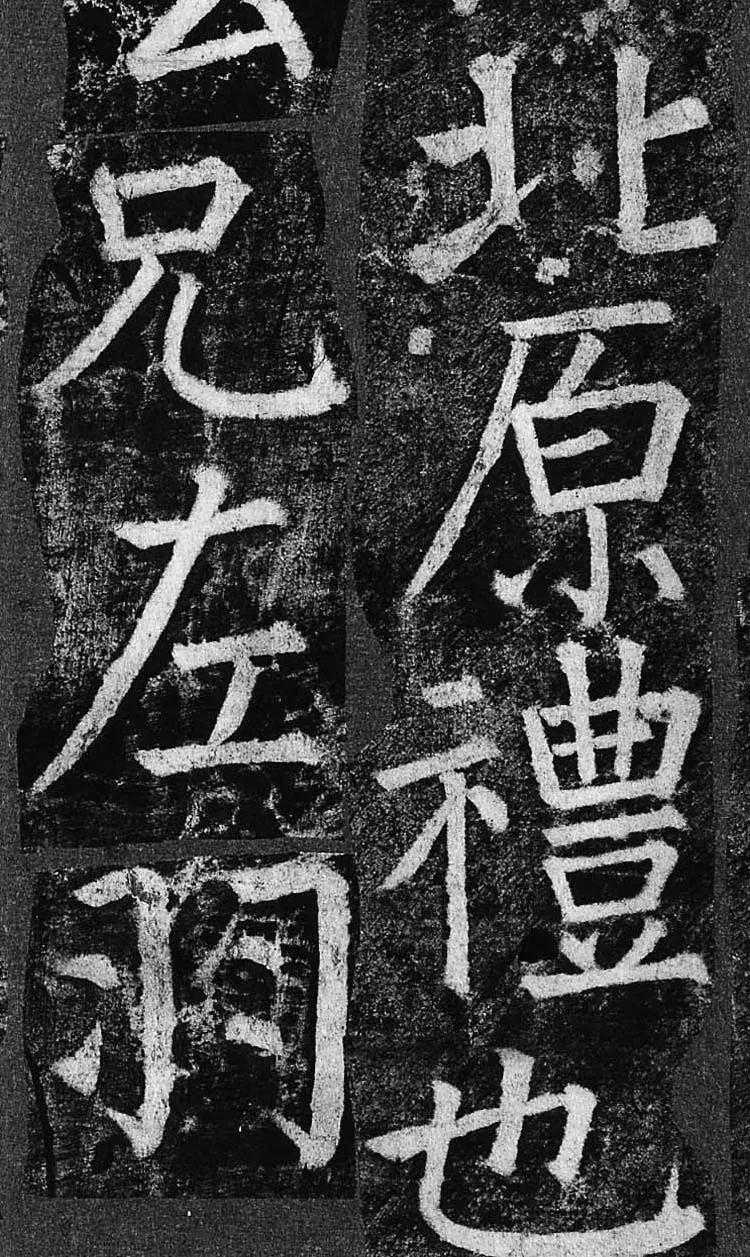 北原禮也
兄左羽